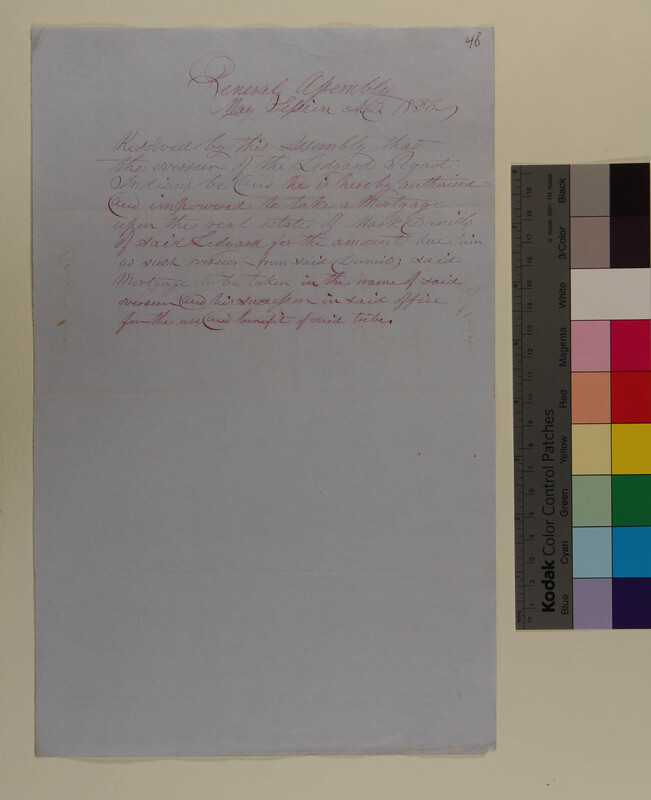 48
General Assembly
May Session A.D. 1855
Resolved by this Assembly that
the overseer of the Ledyard Pequot
Indians be and he is hereby authorised
and impowered to take a Mortgage
upon the real estate of Mark Daniels
of said Ledyard for the amount due him
as such overseer from said Daniels; said
Mortgage to be taken in the name of said
overseer and his sucessors in said office
for the use and benefit of said tribe.
Kodak Color Control Patches
© Kodak, 2007 TM: Kodak
Blue
Cyan
Green
Yellow
Red
Magenta
White
3/Color
Black